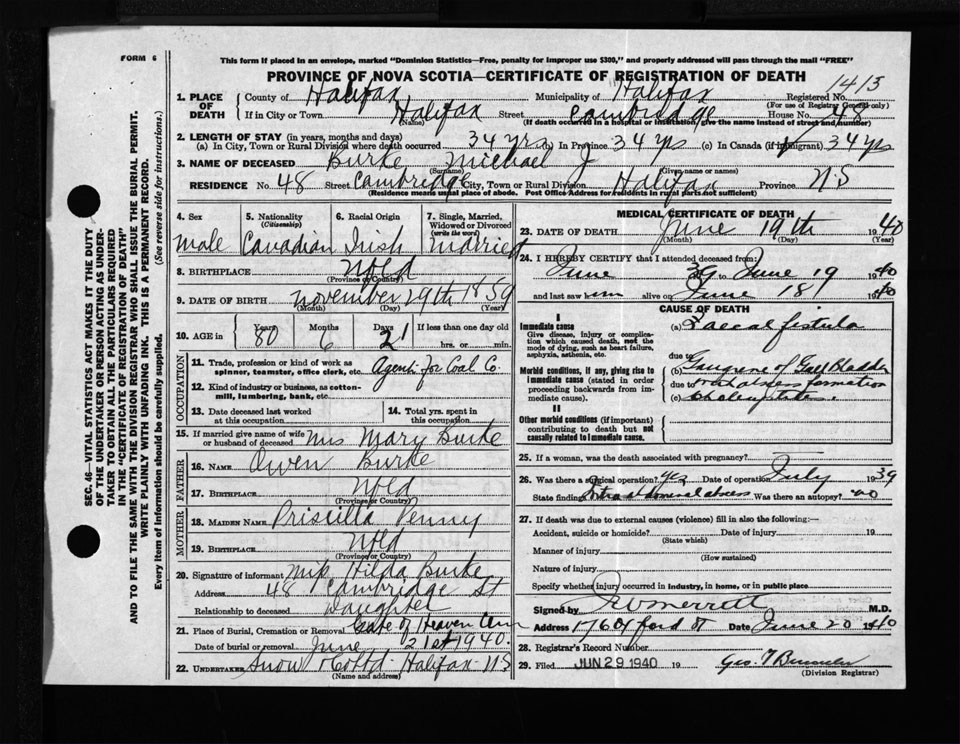 FORM 6
This form if placed in an envelope, marked "Dominion Statistics—Free, penalty for improper use $300," and properly addressed will pass through the mail "FREE"
PROVINCE OF NOVA SCOTIA—CERTIFICATE OF REGISTRATION OF DEATH
1. PLACE OF DEATH
County of Halifax Municipality of Halifax Registered No. 1413
(For use of Registrar General only)
If in City or Town Halifax Street Cambridge House No. 48
(Name) (If death occurred in a hospital or institution, give the name instead of street and number)
2. LENGTH OF STAY (in years, months and days)
(a) In City, Town or Rural Division where death occurred 34 yrs (b) In Province 34 yrs (c) In Canada (if immigrant) 34 yrs
3. NAME OF DECEASED Burke Michael J
(Surname) (Given name or names)
RESIDENCE No. 48 Street Cambridge City, Town or Rural Division Halifax Province N.S
(Residence means usual place of abode. Post Office Address for residents in rural parts not sufficient)
SEC. 46—VITAL STATISTICS ACT MAKES IT THE DUTY
OF THE UNDERTAKER OR PERSON ACTING AS UNDER-
TAKER TO OBTAIN ALL THE PARTICULARS REQUIRED
IN THE "CERTIFICATE OF REGISTRATION OF DEATH"
AND TO FILE THE SAME WITH THE DIVISION REGISTRAR WHO SHALL ISSUE THE BURIAL PERMIT.
WRITE PLAINLY WITH UNFADING INK. THIS IS A PERMANENT RECORD.
Every item of information should be carefully supplied. (See reverse side for instructions.)
4. Sex 5. Nationality (Citizenship) 6. Racial Origin 7. Single, Married, Widowed or Divorced (write the word)
Male Canadian Irish Married
8. BIRTHPLACE Nfld
(Province or Country)
9. DATE OF BIRTH November 29th 1859
(Month) (Day) (Year)
10. AGE in Years Months Days If less than one day old
80 6 21 hrs. or min.
OCCUPATION
11. Trade, profession or kind of work as spinner, teamster, office clerk, etc. Agent for Coal Co.
12. Kind of industry or business, as cotton-mill, lumbering, bank, etc.
13. Date deceased last worked at this occupation
14. Total yrs. spent in this occupation
15. If married give name of wife or husband of deceased Mrs Mary Burke
FATHER
16. NAME Owen Burke
17. BIRTHPLACE Nfld
(Province or Country)
MOTHER
18. MAIDEN NAME Priscilla Penny
19. BIRTHPLACE Nfld
(Province or Country)
20. Signature of informant Miss Hilda Burke
Address 48 Cambridge St
Relationship to deceased Daughter
21. Place of Burial, Cremation or Removal Gate of Heaven Cem
Date of burial or removal June 21st 1940.
22. UNDERTAKER Snow & Co Ltd Halifax N S
(Name and address)
MEDICAL CERTIFICATE OF DEATH
23. DATE OF DEATH June 19th 1940
(Month) (Day) (Year)
24. I HEREBY CERTIFY that I attended deceased from:
June 39 to June 19 1940
and last saw him alive on June 18 1940
CAUSE OF DEATH
I
Immediate cause
Give disease, injury or complication which caused death, not the mode of dying, such as heart failure, asphyxia, asthenia, etc.
(a) Faecal fistula
due to
Morbid conditions, if any, giving rise to immediate cause (stated in order proceeding backwards from immediate cause).
(b) Gangrene of Gall Bladder
due to with abscess formation
(c)
II
Other morbid conditions (if important) contributing to death but not causally related to immediate cause.
25. If a woman, was the death associated with pregnancy?
26. Was there a surgical operation? yes Date of operation July 1939
State finding Intra abdominal abscess Was there an autopsy? no
27. If death was due to external causes (violence) fill in also the following:—
Accident, suicide or homicide? Date of injury 19
(State which)
Manner of injury
(How sustained)
Nature of injury
Specify whether injury occurred in industry, in home, or in public place
Signed by M.D.
Address 176 Oxford St Date June 20 1940
28. Registrar's Record Number
29. Filed JUN 29 1940 19
(Division Registrar)